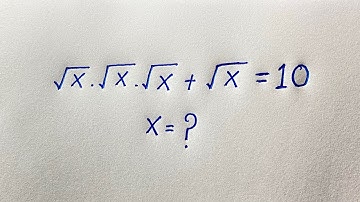 √x.√x.√x + √x = 10
x = ?